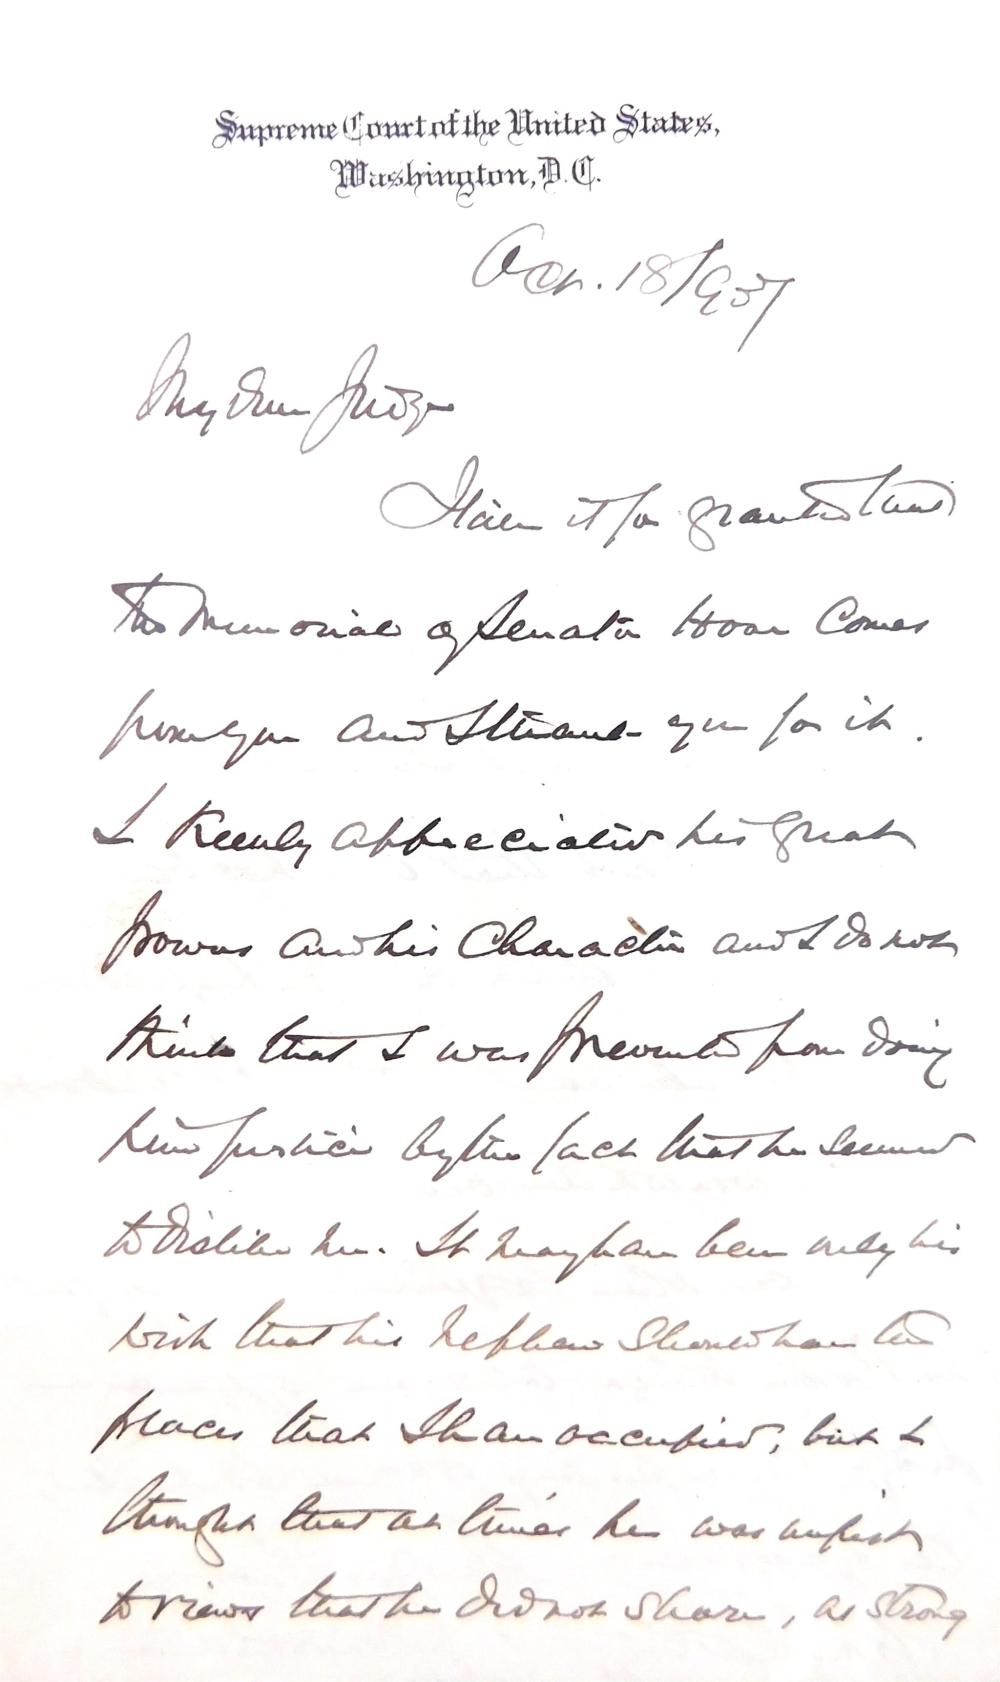 Supreme Court of the United States,
Washington, D.C.
Oct. 18/1937
My dear Judge
I take it for granted that
the Memorial of Senator Hoar comes
from you and I thank you for it.
I keenly appreciated his great
powers and his character and I do not
think that I was prevented from doing
him justice by the fact that he seemed
to dislike me. It may have been only his
wish that his nephew should have the
places that I have occupied, but I
thought that at times he was unjust
to views that he did not share, as strong